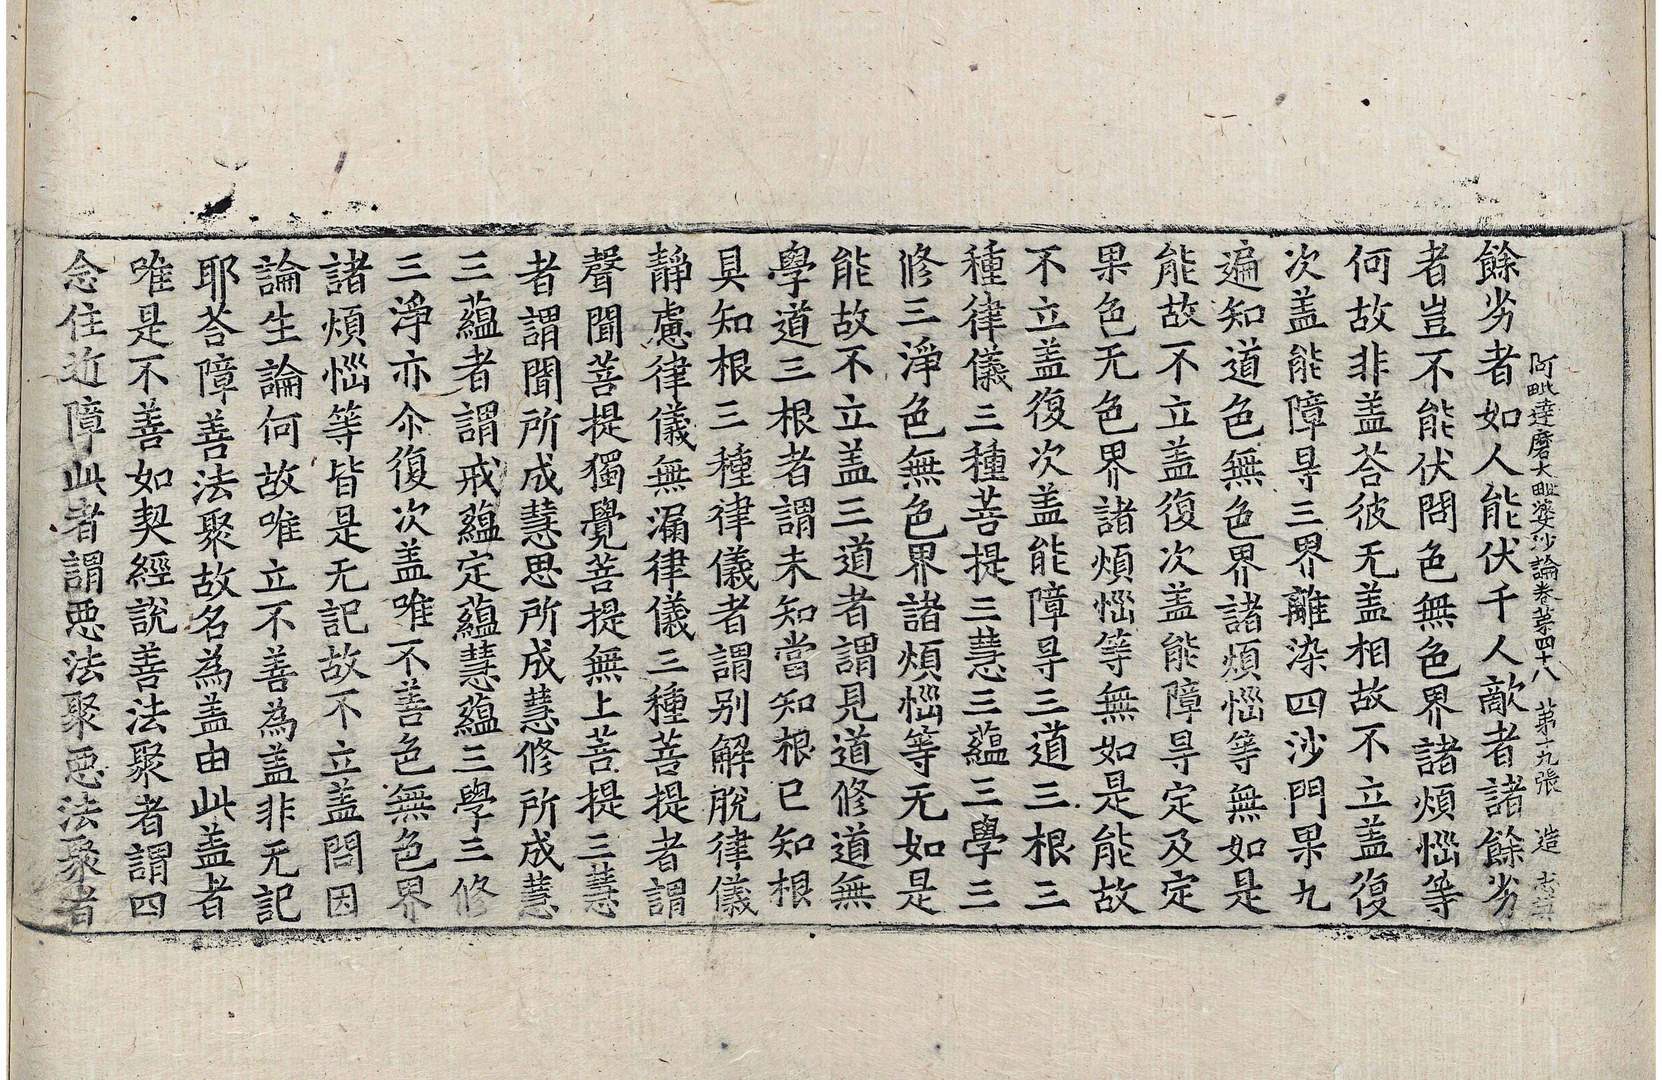 阿毗達磨大毗婆沙論卷苐四十八 苐十九張 造
餘劣者如人能伏千人敵者諸餘劣
者豈不能伏問色無色界諸煩惱等
何故非盖荅彼无盖相故不立盖復
次盖能障㝵三界離染四沙門果九
遍知道色無色界諸煩惱等無如是
能故不立盖復次盖能障㝵定及定
果色无色界諸煩惱等無如是能故
不立盖復次盖能障㝵三道三根三
種律儀三種菩提三慧三蘊三學三
修三淨色無色界諸煩惱等无如是
能故不立盖三道者謂見道修道無
學道三根者謂未知當知根已知根
具知根三種律儀者謂别解脫律儀
靜慮律儀無漏律儀三種菩提者謂
聲聞菩提獨覺菩提無上菩提三慧
者謂聞所成慧思所成慧修所成慧
三蘊者謂戒蘊定蘊慧蘊三學三修
三淨亦尒復次盖唯不善色無色界
諸煩惱等皆是无記故不立盖問因
論生論何故唯立不善為盖非无記
耶荅障善法聚故名為盖由此盖者
唯是不善如契經說善法聚者謂四
念住近障此者謂惡法聚惡法聚者